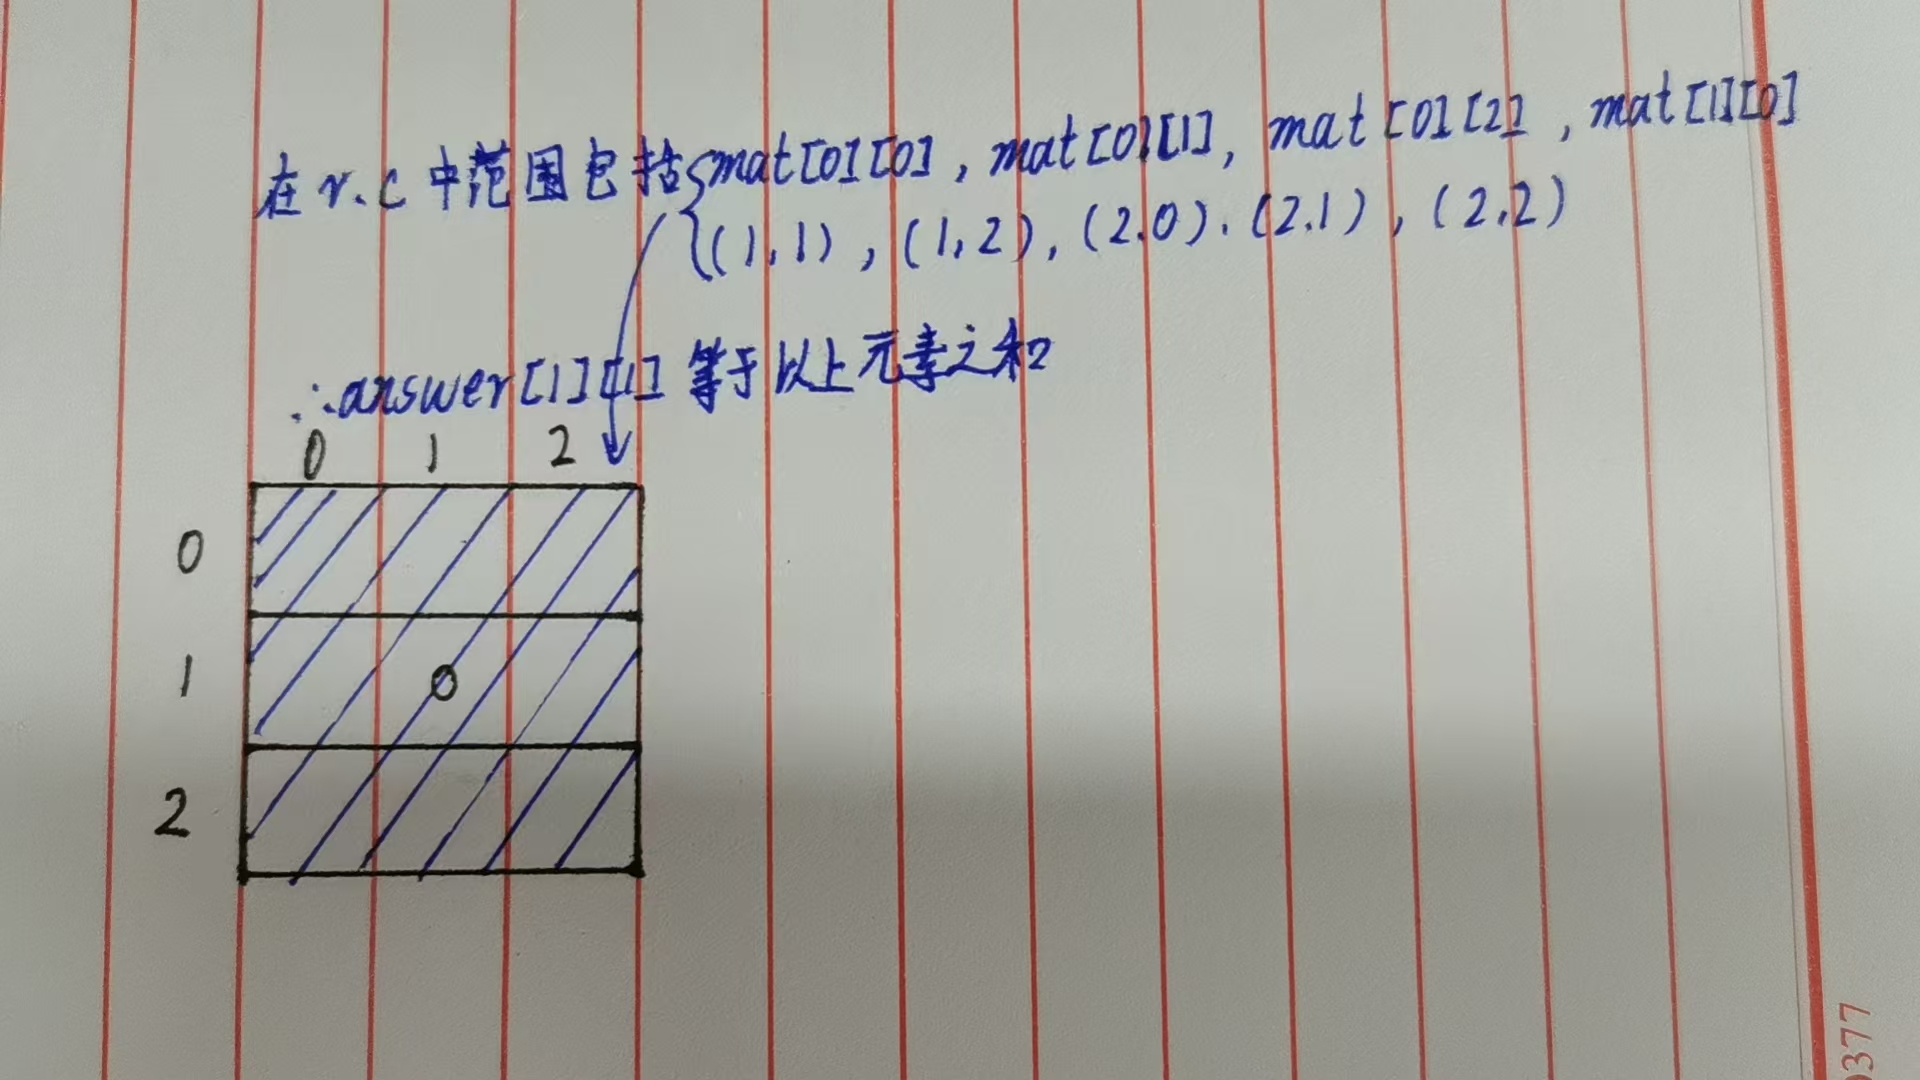 在r.c中范围包括{mat[0][0], mat[0][1], mat[0][2], mat[1][0]
(1,1), (1,2), (2.0). (2.1), (2.2)
∴answer[1][1]等于以上元素之和
0 1 2
0
1 0
2
0377